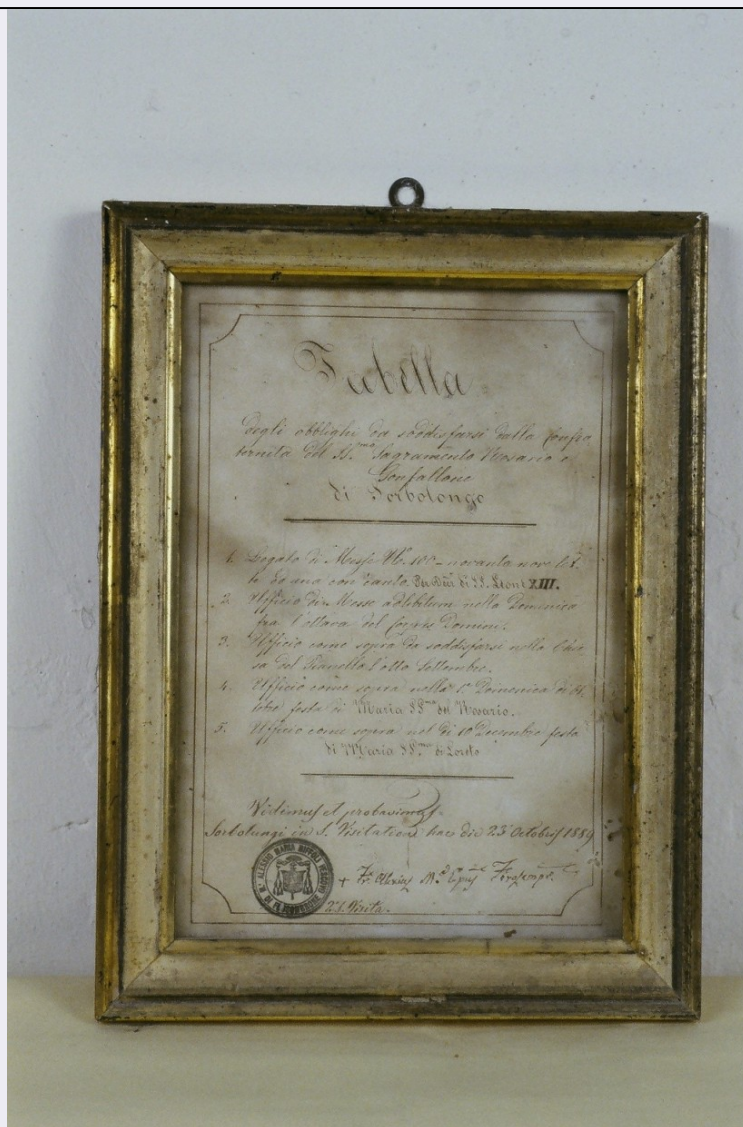 Tabella
Degli obblighi da soddisfarsi dalla Confra
ternita del SS.mo Sagramento Rosario e
Gonfallone
di Sorbolongo
1. Legato di Messe N.o 100 - novanta nove
le ed una con canto di SS. Leone XIII.
2. Ufficio di Messe adlibitum nella Domenica
fra l'ottava del Corpus Domini.
3. Ufficio come sopra da soddisfarsi nella Chie
sa del Pianello l'otto Settembre.
4. Ufficio come sopra nella 1a Domenica di
tobre festa di Maria SS.ma del Rosario.
5. Ufficio come sopra nel dì 10 Decembre festa
di Maria SS.ma di Loreto
Vidimus et probavimus
Sorbolungi in S. Visitatione hac die 23 Octobris 1889
+ Fr. Alexius M.a Epus Forosempr.
2a S. Visita.
ALESSIO MARIA BIFFOLI VESCOVO
DI FOSSOMBRONE